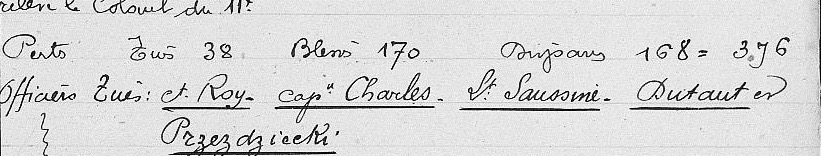 relève le Colonel du 11e
Perts Tués 38 Blessés 170 Disparus 168 = 376
Officiers Tués: Ct. Roy - capne Charles - Lt Saussine - Dutaut et
Przezdziecki